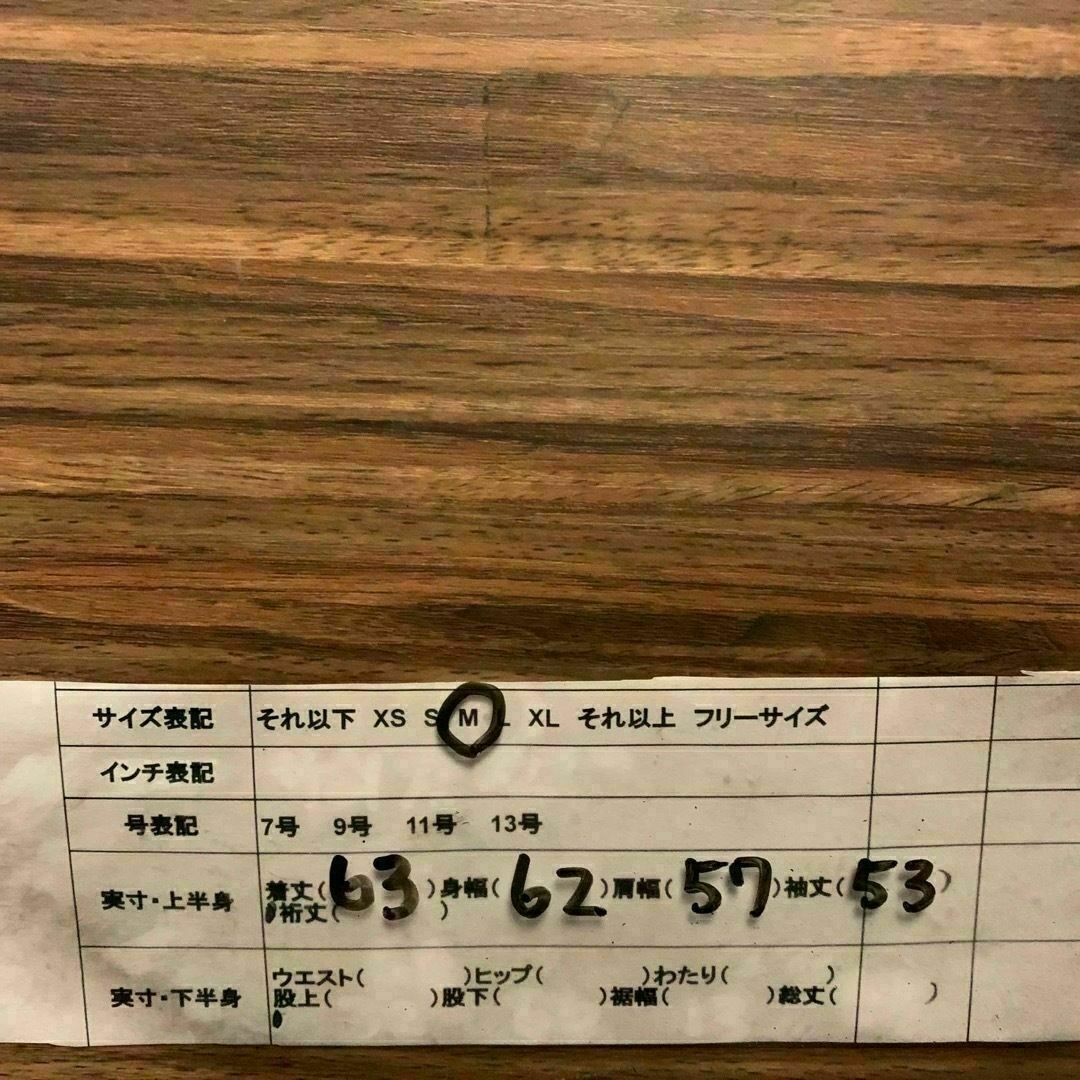 サイズ表記 それ以下 XS S M L XL それ以上 フリーサイズ
インチ表記
号表記 7号 9号 11号 13号
実寸・上半身 着丈(63)身幅(62)肩幅(57)袖丈(53)
裄丈( )
実寸・下半身 ウエスト( )ヒップ( )わたり( )
股上( )股下( )裾幅( )総丈( )